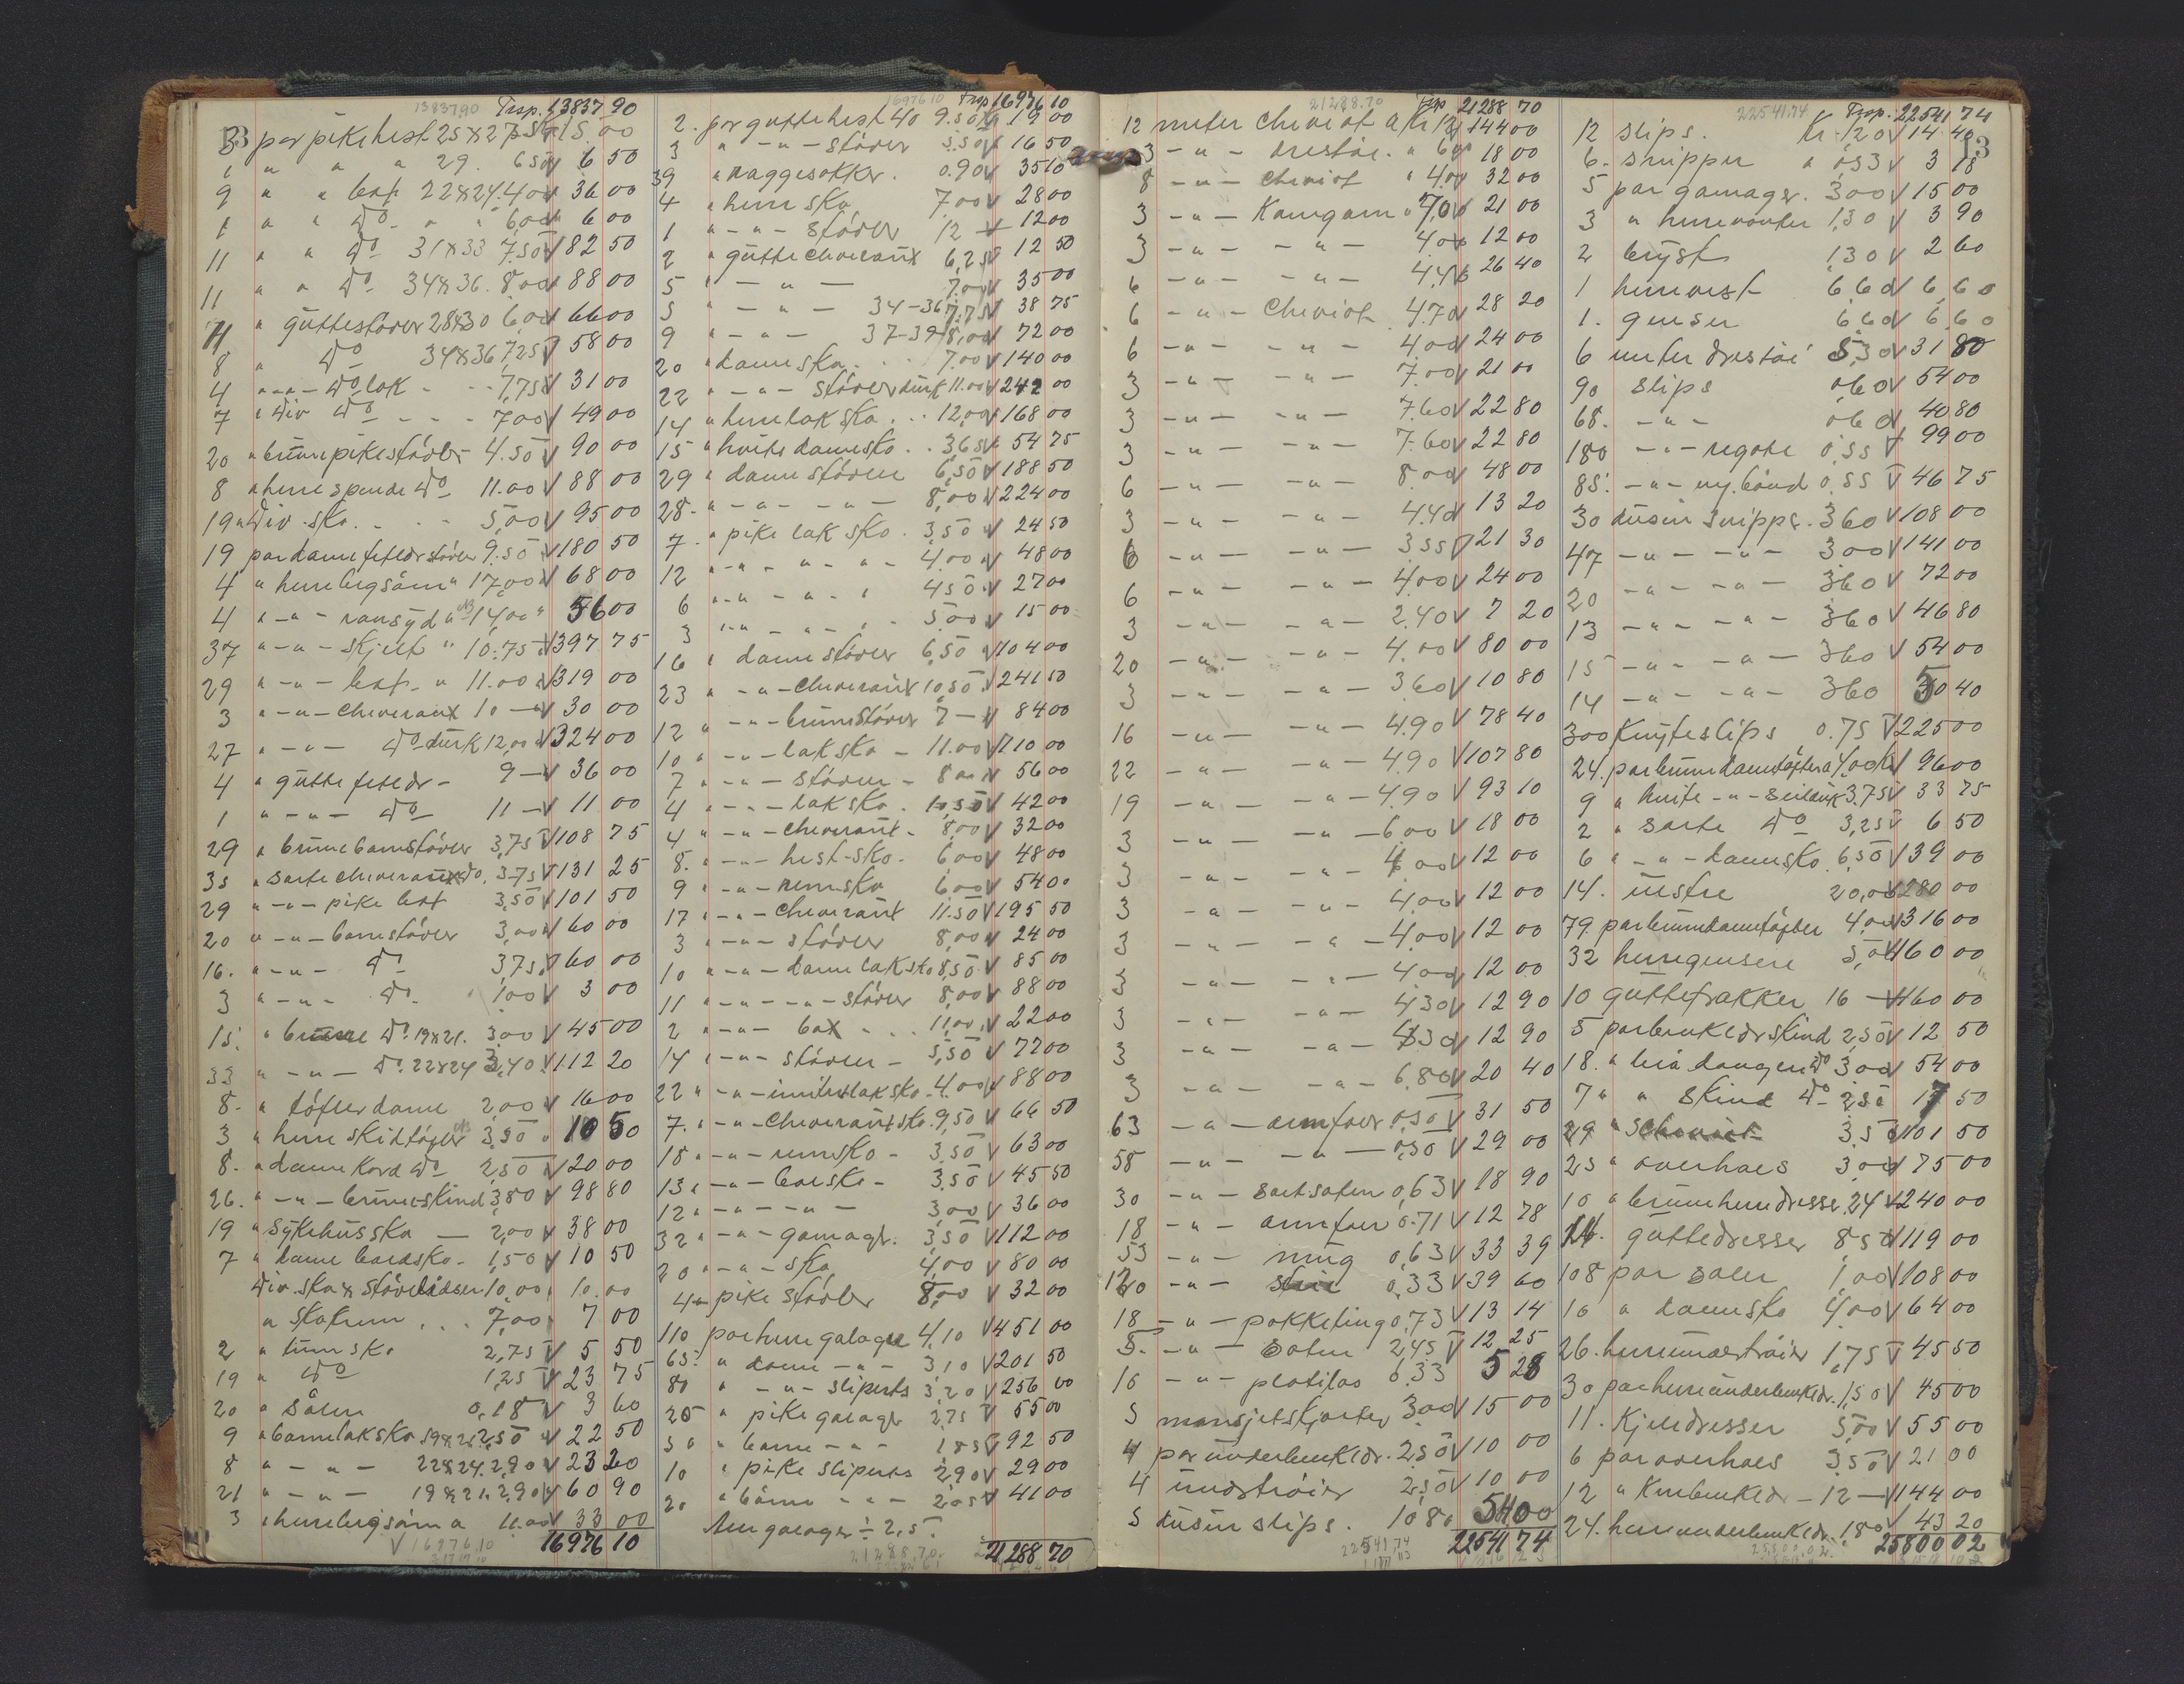 13837.90 Trsp. 13837 90
3 par pikehest 25x27 5.00 15.00
1 " " " 29. 6.50 V 6 50
9 " " box 22x24 4.00 V 36 00
1 " " Do - " " 6,00 V 6 00
11 " " Do 31x33 7.50 V 82 50
11 " " Do 34x36. 8.00 V 88 00
11 " guttestövler 28x30 6,00 V 66 00
8 " Do 34x36 7,25 V 58 00
4 " - " - Do lak - - - 7,75 V 31 00
7 " div Do - - - 7,00 V 49 00
20 " brune pikestövler 4.50 V 90 00
8 " herre spende Do 11.00 V 88 00
19 " div. sko. - - - 5,00 V 95 00
19 par dame feteldrstövler 9.50 V 180 50
4 " herre begsöm " 17,00 V 68 00
4 " - " - randsyd " 14,00 " 56 00
37 " - " - skjelt " 10.75 V 397 75
29 " - " - box - " 11.00 V 319 00
3 " - " - cheveraux 10 - V 30 00
27 " - " - Do durk 12,00 V 324 00
4 " gutte feteldr - 9 - V 36 00
1 " - " - Do 11 - V 11 00
29 " brune barnstövler 3,75 V 108 75
35 " sorte cheveraux Do. 3.75 V 131 25
29 " - " - pike box 3,50 V 101 50
20 " - " - barnestövler 3,00 V 60 00
16. " - " - Do 3,75 V 60 00
3 " - " - Do - 1,00 V 3 00
15. " brune Do 19x21. 3.00 V 45 00
33 " - " - Do. 22x24 3,40 V 112 20
8. " töfler dame 2,00 V 16 00
3 " herre skitöfler 3.50 " 10 50
8. " dame kord Do 2,50 V 20 00
26. " - " - bruneskind 3,80 V 98 80
19 " sykehussko — 2,00 V 38 00
7 " dame badsko - 1,50 V 10 50
Div. sko & stövelidser 10,00. 10.00
" skokrem . . . 7,00 . 7 00
2 " turnsko 2,75 V 5 50
19 " Do 1,25 V 23 75
20 " såler 0,18 V 3 60
9 " barnelaksko 19x21 2,50 V 22 50
8 " - " - 22x24. 2,90 V 23 20
21 " - " - 19x21. 2,90 V 60 90
3 " herre begsöm a 11.00 V 33 00
V 16976,10 16976 10
16976 10 Trsp 16976 10
2. par guttehest 40 9.50 V 19 00
3 " - " - stövler 5.50 V 16 50
39 " raggesokker. 0.90 V 35 10
4 " herre sko 7,00 V 28 00
1 " - " - stövler 12 - V 12 00
2 " gutte cheveraux 6,25 V 12 50
5 " - " - 7.00 V 35 00
5 " - " - 34-36 7.75 V 38 75
9 " - " - 37-39 8,00 V 72 00
20 " damesko. . . 7.00 V 140 00
22 " - " - stövler durk 11.00 V 242 00
14 " herrelaksko . . 12,00 V 168 00
15 " hvite damesko . . 3,65 V 54 75
29 " dame stövler 6,50 V 188 50
28. " - " - " - 8,00 V 224 00
7. " pike lak sko. 3,50 V 24 50
12 " - " - " - " - 4.00 V 48 00
6 " - " - " - " 4.50 V 27 00
3 " - " - " - 5.00 V 15 00
16 " damestövler 6,50 V 104 00
23 " - " - cheveraux 10,50 V 241 50
12 " - " - brunestövler 7 - V 84 00
10 " - " - laksko - 11.00 V 110 00
7 " - " - stövler - 8.00 V 56 00
4 " - " - laksko. 10,50 V 42 00
4 " - " - cheveraux - 8,00 V 32 00
8. " - " - hest-sko. 6.00 V 48 00
9 " - " - remsko 6.00 V 54 00
17 " - " - cheveraux 11.50 V 195 50
3 " - " - stövler 8,00 V 24 00
10 " - " - dame laksko 8,50 V 85 00
11 " - " - " - stövler 8,00 V 88 00
2 " - " - box . . . 11,00 V 22 00
14 " - " - stövler - 5,50 V 77 00
22 " - " - imitertlaksko. 4.00 V 88 00
7. " - " - cheverauxsko. 9,50 V 66 50
18 " - " - remsko - 3.50 V 63 00
13 " - " - badsko - 3.50 V 45 50
12 " - " - " - 3,00 V 36 00
32 " - " - gamagr. 3,50 V 112 00
20 " - " - sko 4,00 V 80 00
4 " pike stövler 8,00 V 32 00
110 par herre galoger 4,10 V 451 00
65. " dame - " - 3,10 V 201 50
80 " - " - slipers 3,20 V 256 00
20 " pike galoger 2,75 V 55 00
50 " barne - " - 1.85 V 92 50
10 " pike slipers 2,90 V 29 00
20 " barne - " - 2.05 V 41 00
21288.70. 21288 70
21288.70 Trsp 21288 70
12 meter cheviot a Kr 12 V 144 00
3 - " - drestøi. " 6.00 18 00
8 - " - cheviot " 4.00 32 00
3 - " - Kamgarn " 7,00 21 00
3 - " - - " - 4.00 12 00
6 - " - - " - 4,40 26 40
6 - " - cheviot 4.70 28 20
6 - " - - " - 4.00 24 00
3 - " - - " - 7.00 21 00
3 - " - - " - 7.60 V 22 80
3 - " - - " - 7.60 V 22 80
6 - " - - " - 8.00 48 00
3 - " - - " - 4.40 13 20
6 - " - - " - 3.55 V 21 30
6 - " - - " - 4,00 V 24 00
3 - " - - " - 2.40 V 7 20
20 - " - - " - 4.00 V 80 00
3 - " - - " - 3.60 V 10 80
16 - " - - " - 4.90 V 78 40
22 - " - - " - 4.90 V 107 80
19 - " - - " - 4.90 V 93 10
3 - " - - " - 6.00 V 18 00
3 - " - - " - 4.00 V 12 00
3 - " - - " - 4.00 V 12 00
3 - " - - " - 4.00 V 12 00
3 - " - - " - 4.00 V 12 00
3 - " - - " - 4.30 V 12 90
3 - " - - " - 4.30 V 12 90
3 - " - - " - 6.80 V 20 40
63 - " - armfoer 0.50 V 31 50
58 - " - - " - 0,50 V 29 00
30 - " - sortsaten 0,63 V 18 90
18 - " - armfoer 0.71 V 12 78
53 - " - ming 0,63 V 33 39
120 - " - 0,33 V 39 60
18 - " - pokketing 0,73 V 13 14
5. - " - saten 2,45 V 12 25
16 - " - platilas 0.33 5 28
5 mansjetskjorter 3.00 V 15 00
4 par underbenkldr. 2.50 V 10 00
4 undtröier 2,50 V 10 00
5 dusin slips. 10,80 54 00
22541,74 22541 74
22541.74 Trsp. 22541 74
12 slips. Kr 1.20 V 14 40
6. snipper " 0,53 V 3 18
5 par gamager. 3,00 V 15 00
3 " herrevanter 1,30 V 3 90
2 bryst 1,30 V 2 60
1 herrevest 6,60 V 6,60
1. genser 6,60 V 6,60
6 meter drestøi 5,30 V 31 80
90 slips 0.60 V 54 00
68. - " - 0.60 V 40 80
180 - " - regate 0,55 V 99 00
85. - " - m/. bånd 0.55 V 46 75
30 dusin snipper. 3.60 V 108 00
47 - " - - " - 3.00 V 141 00
20 - " - - " - 3.60 V 72 00
13 - " - - " - 3.60 V 46 80
15 - " - - " - 3.60 V 54 00
14 - " - - " - 3.60 50 40
300 Knyteslips 0.75 V 225 00
24. par brune dametöfler a 4.00 V 96 00
9 " hvite - " - seilduk 3.75 V 33 75
2 " sorte Do 3,25 V 6 50
6 " - " - damesko. 6,50 V 39 00
14. üstre 20,00 V 280 00
79 par brune dametöfler 4,00 V 316 00
32 herregensere 5,00 V 160 00
10 guttefrakker 16 - V 160 00
5 par benkldr skind 2,50 V 12 50
18. " blå dongeri Do 3,00 V 54 00
7 " " skind Do 2,50 17 50
29 " 3.50 V 101 50
25 " overhaels 3,00 V 75 00
10 " brune herredresser. 24 V 240 00
14. guttedresser 8,50 V 119 00
108 par saler 1,00 V 108 00
16 " damesko 4,00 V 64 00
26. herreundertröier 1,75 V 45 50
30 par herreunderbenkldr. 1,50 V 45 00
11. Kjeledresser 5,00 V 55 00
6 par overhaels 3.50 V 21 00
12 " Knebenkldr - 12 — V 144 00
24. herreunderbenkldr. 1.80 V 43 20
25800,02. 25800 02
13